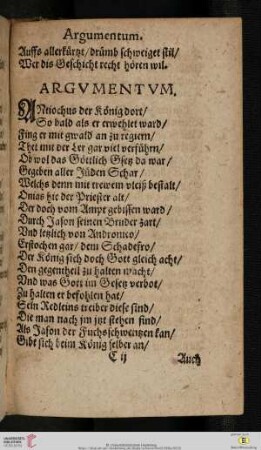 Argumentum.
Auffs allerkürtzt/ drümb schweiget stil/
Wer dis Geschicht recht hören wil.
ARGVMENTVM.
ANtiochus der König dort/
So bald als er erwehlet ward/
Fing er mit gwald an zu regiern/
Thet mit der Ler gar viel verführn/
Ob wol das Göttlich Gsetz da war/
Gegeben aller Jüden Schar/
Welchs denn mit trewem vleiß bestalt/
Onias hie der Priester alt/
Der doch vom Ampt gebissen ward/
Durch Jason seinen Bruder zart/
Vnd letzlich von Andronico/
Erstochen gar/ dem Schadefro/
Der König sich doch Gott gleich acht/
Den gegentheil zu halten macht/
Vnd was Gott im Gesetz verbot/
Zu halten er befohlen hat/
Sein Redleins treiber diese sind/
Die man nach jm jtzt stehen find/
Als Jason der Fuchsschwentzen kan/
Gibt sich beim König selber an/
C ij
Auch